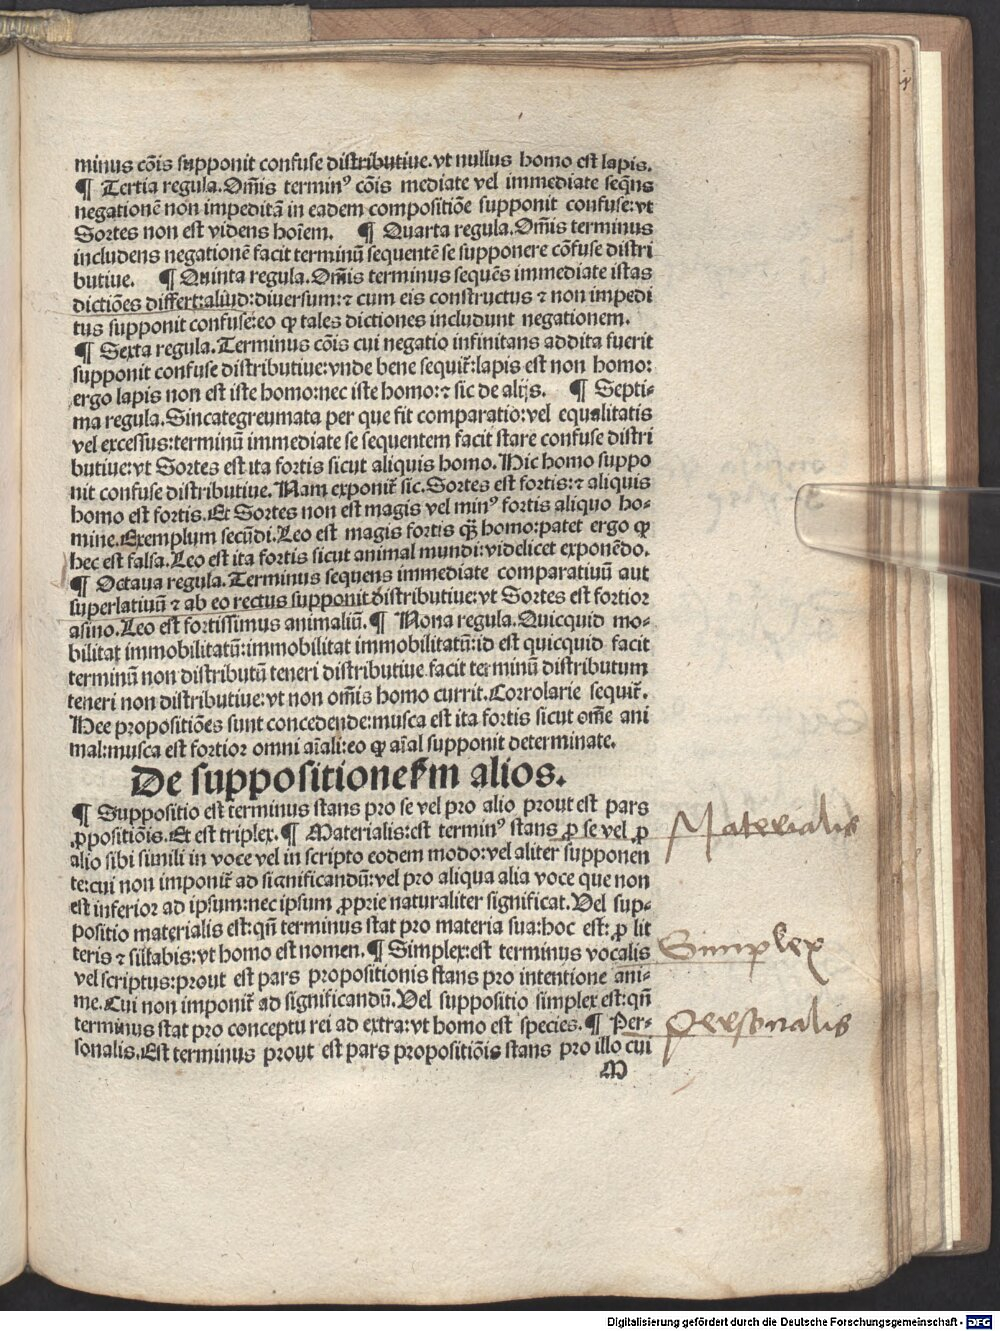 minus cōis supponit confuse distributiue.vt nullus homo est lapis.
¶ Tertia regula.Om̄is terminꝰ cōis mediate vel immediate seqn̄s
negationē non impeditā in eadem compositiōe supponit confuse:vt
Sortes non est videns hoīem. ¶ Quarta regula.Om̄is terminus
includens negationē facit terminū sequentē se supponere cōfuse distri
butiue. ¶ Quinta regula.Om̄is terminus sequēs immediate istas
dictiōes differt:aliud:diuersum:⁊ cum eis constructus ⁊ non impedi
tus supponit confuse:eo ꝙ tales dictiones includunt negationem.
¶ Sexta regula.Terminus cōis cui negatio infinitans addita fuerit
supponit confuse distributiue:vnde bene sequit̄:lapis est non homo:
ergo lapis non est iste homo:nec iste homo:⁊ sic de alijs. ¶ Septi-
ma regula.Sincategreumata per que fit comparatio:vel equalitatis
vel excessus:terminū immediate se sequentem facit stare confuse distri
butiue:vt Sortes est ita fortis sicut aliquis homo.Hic homo suppo
nit confuse distributiue.Nam exponit̄ sic.Sortes est fortis:⁊ aliquis
homo est fortis.Et Sortes non est magis vel minꝰ fortis aliquo ho-
mine.Exemplum secūdi.Leo est magis fortis qꝫ̄ homo:patet ergo ꝙ
hec est falsa.Leo est ita fortis sicut animal mundi:videlicet exponēdo.
¶ Octaua regula.Terminus sequens immediate comparatiuū aut
superlatiuū ⁊ ab eo rectus supponit distributiue:vt Sortes est fortior
asino.Leo est fortissimus animaliū.¶ Nona regula.Quicquid mo-
bilitat immobilitatū:immobilitat immobilitatū:id est quicquid facit
terminū non distributū teneri distributiue facit terminū distributum
teneri non distributiue:vt non om̄is homo currit.Corrolarie sequit̄.
Hee propositiōes sunt concedende:musca est ita fortis sicut om̄e ani
mal:musca est fortior omni aīali:eo ꝙ aīal supponit determinate.
De suppositione ẜm alios.
¶ Suppositio est terminus stans pro se vel pro alio prout est pars
ꝓpositiōis.Et est triplex.¶ Materialis:est terminꝰ stans ꝓ se vel ꝓ
alio sibi simili in voce vel in scripto eodem modo:vel aliter supponen
te:cui non imponit̄ ad significandū:vel pro aliqua alia voce que non
est inferior ad ipsum:nec ipsum ꝓprie naturaliter significat.Vel sup-
positio materialis est:qn̄ terminus stat pro materia sua:hoc est: ꝓ lit
teris ⁊ sillabis:vt homo est nomen.¶ Simplex:est terminus vocalis
vel scriptus:prout est pars propositionis stans pro intentione ani-
me.Cui non imponit̄ ad significandū.Vel suppositio simplex est:qn̄
terminus stat pro conceptu rei ad extra:vt homo est species.¶ Per-
sonalis.Est terminus prout est pars propositiōis stans pro illo cui
M
Materialis
Simplex
personalis
Digitalisierung gefördert durch die Deutsche Forschungsgemeinschaft - DFG